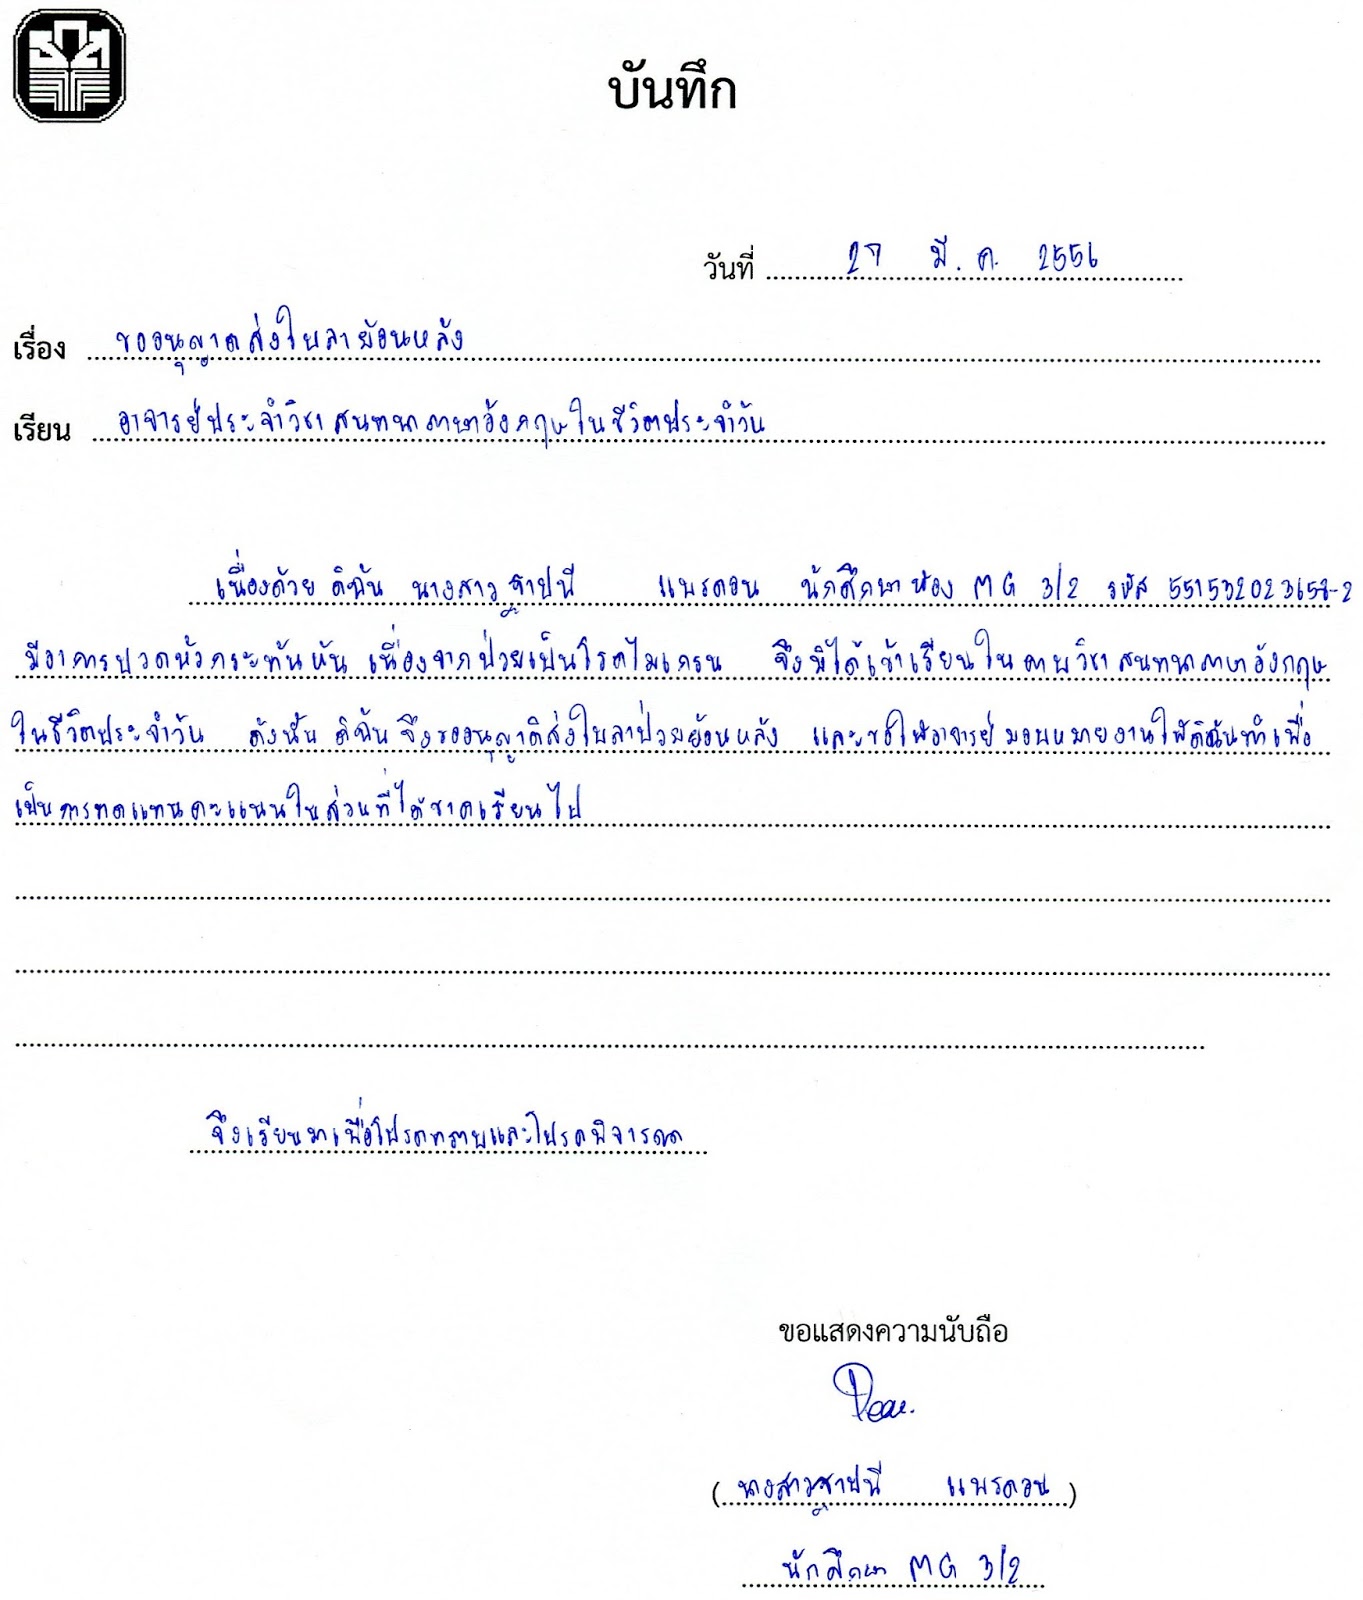 บันทึก
วันที่ 27 มี.ค. 2556
เรื่อง ขออนุญาตส่งใบลาย้อนหลัง
เรียน อาจารย์ประจำวิชาสนทนาภาษาอังกฤษในชีวิตประจำวัน
เนื่องด้วย ดิฉัน นางสาวฐาปนี แพรดอน นักศึกษาห้อง MG 3/2 รหัส
มีอาการปวดหัวกระทันหัน เนื่องจากป่วยเป็นโรคไมเกรน จึงมิได้เข้าเรียนในคาบวิชาสนทนาภาษาอังกฤษ
ในชีวิตประจำวัน ดังนั้น ดิฉันจึงขออนุญาติส่งใบลาป่วยย้อนหลัง และขอให้อาจารย์มอบหมายงานให้ดิฉันทำเพื่อ
เป็นการทดแทนคะแนนในส่วนที่ได้ขาดเรียนไป
จึงเรียนมาเพื่อโปรดทราบและโปรดพิจารณา
ขอแสดงความนับถือ
(นางสาวฐาปนี แพรดอน)
นักศึกษา MG 3/2